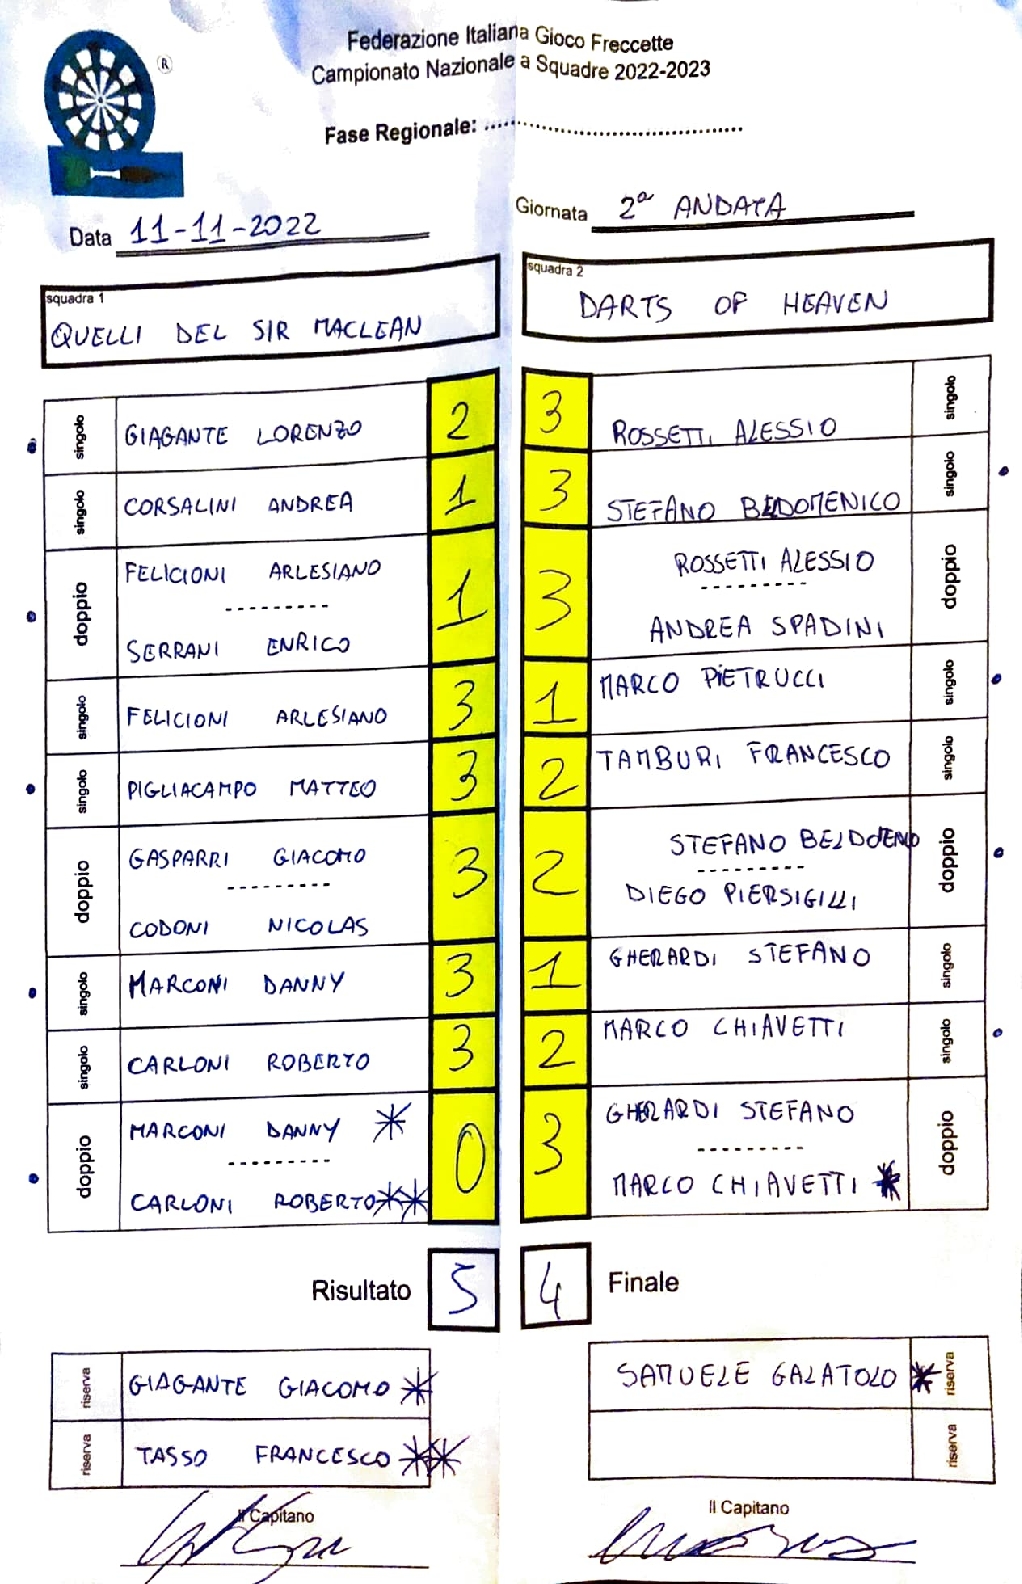 Federazione Italiana Gioco Freccette
Campionato Nazionale a Squadre 2022-2023
®
Fase Regionale: ........................................
Data 11-11-2022
Giornata 2ª ANDATA
squadra 1
QUELLI DEL SIR MACLEAN
squadra 2
DARTS OF HEAVEN
singolo GIAGANTE LORENZO 2 3 ROSSETTI ALESSIO singolo
singolo CORSALINI ANDREA 1 3 STEFANO BELDOMENICO singolo
doppio FELICIONI ARLESIANO 1 3 ROSSETTI ALESSIO doppio
---------
SERRANI ENRICO ANDREA SPADINI
singolo FELICIONI ARLESIANO 3 1 MARCO PIETRUCCI singolo
singolo PIGLIACAMPO MATTEO 3 2 TAMBURI FRANCESCO singolo
doppio GASPARRI GIACOMO 3 2 STEFANO doppio
---------
CODONI NICOLAS DIEGO PIERSIGILLI
singolo MARCONI DANNY 3 1 GHERARDI STEFANO singolo
singolo CARLONI ROBERTO 3 2 MARCO CHIAVETTI singolo
doppio MARCONI DANNY * 0 3 GHERARDI STEFANO doppio
---------
CARLONI ROBERTO ** MARCO CHIAVETTI *
Risultato 5 4 Finale
riserva GIAGANTE GIACOMO * SAMUELE GALATOLO * riserva
riserva TASSO FRANCESCO ** riserva
Il Capitano
Il Capitano